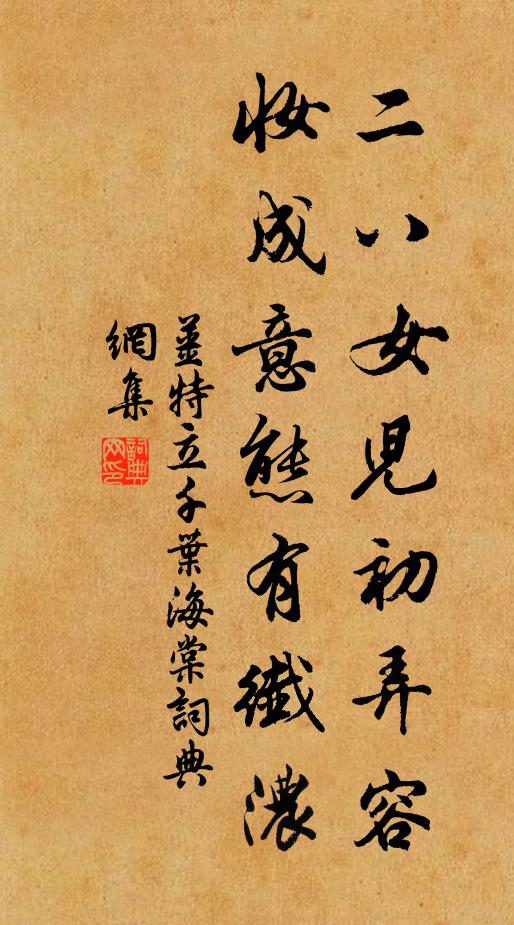 二八女児初弄容
妝成意態有纖濃
姜特立千葉海棠詞典
網集
詞典
网印